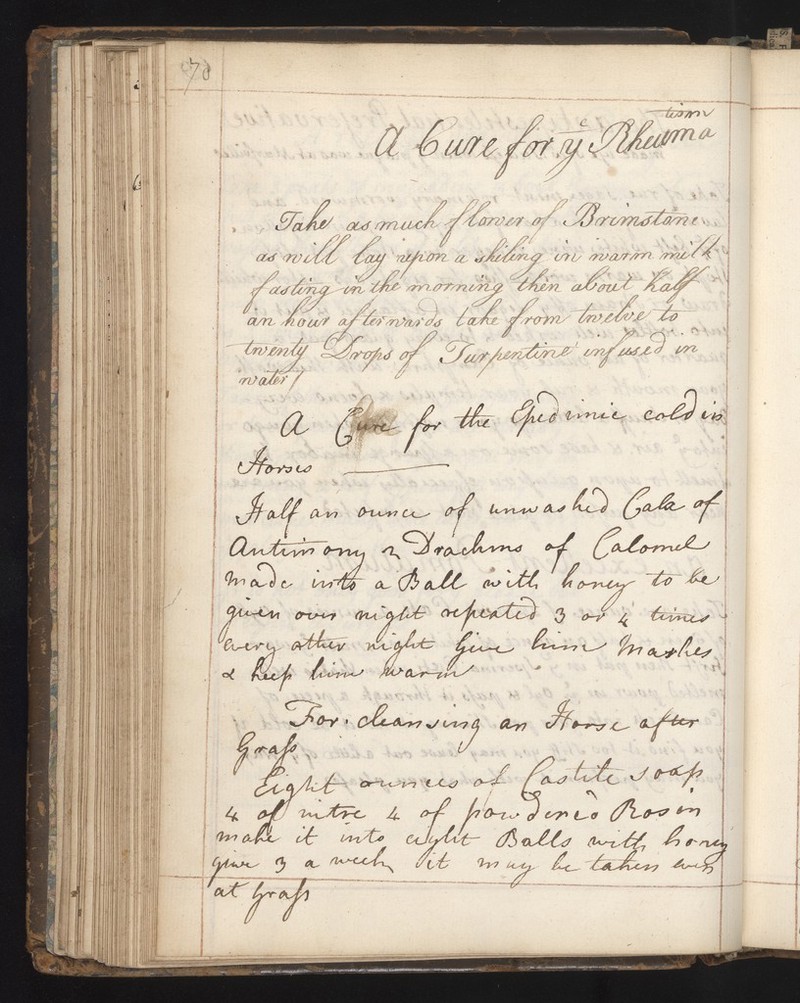 76
A Cure for yᵉ Rheuma
tism
Take as much flower of Brimstone
as will lay upon a shiling in warm milk
fasting in the morning then about half
an hour afterwards take from twelve to
twenty Drops of Turpentine infused in
water
A Cure for the Epedimic cold in
Horses
Half an ounce of unwashed Calx of
Antimony 2 Drachms of Calomel
made into a Ball with honey to be
given over night repeated 3 or 4 times
every other night Give him Mashes
& keep him warm
For cleansing an Horse after
Grass
Eight ounces of Castile soap
4 of nitre 4 of powdered Rosin
make it into eight Balls with honey
give 3 a week it may be taken even
at Grass